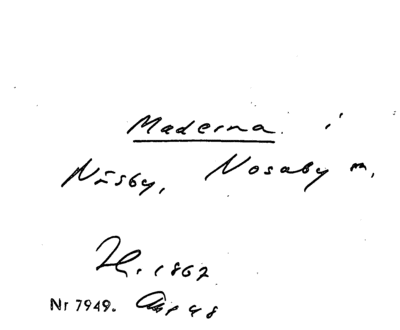 Maderna. i
Näsby, Nosaby
1867
Nr 7949. 48